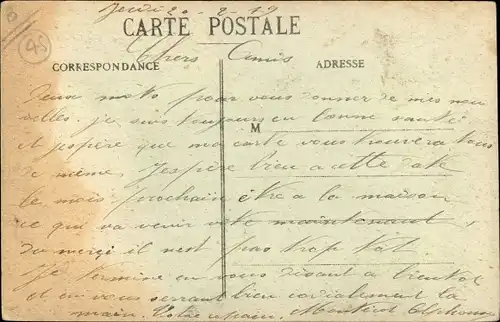 Jeudi 20-2-19
CARTE POSTALE
95
Chers Amis
CORRESPONDANCE
ADRESSE
Deux mots pour vous donner de mes nou
velles. je suis toujours en bonne santé
M
et j'espère que ma carte vous trouvera tous
de même. J'espère bien a cette date
le mois prochain être a la maison
ce qui va venir vite maintenant,
il n'est pas trop tôt.
Je termine en vous disant a bientot
et en vous serrant bien cordialement la
main. Votre copain. Alphonse